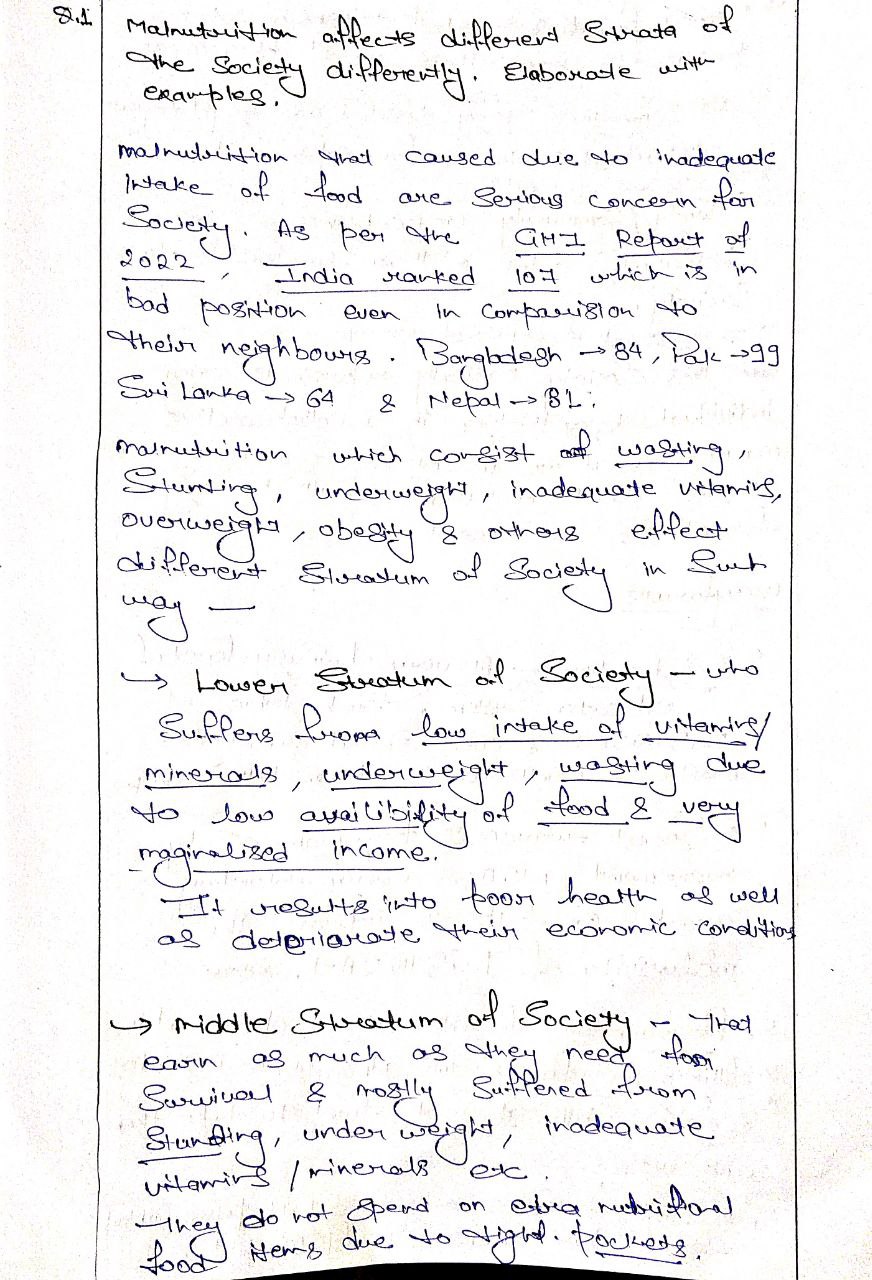 Q.1 Malnutrition affects different Strata of
the Society differently. Elaborate with
examples.
malnutrition that caused due to inadequate
Intake of food are Serious concern for
Society. As per the GHI Report of
2022, India ranked 107 which is in
bad position even in comparision to
their neighbours. Bangladesh → 84, Pak → 99
Sri Lanka → 64 & Nepal → 81.
malnutrition which consist of wasting,
Stunting, underweight, inadequate vitamins,
overweight, obesity & others effect
different Stratum of Society in Such
way —
→ Lower Stratum of Society – who
Suffers from low intake of vitamins/
minerals, underweight, wasting due
to low availibility of food & very
maginalised income.
It results into poor health as well
as deteriarate their economic conditions
→ middle Stratum of Society – That
earn as much as they need for
Survival & mostly Suffered from
Stunting, under weight, inadequate
vitamins / minerals etc.
They do not Spend on extra nutritional
food items due to tight. pockets.